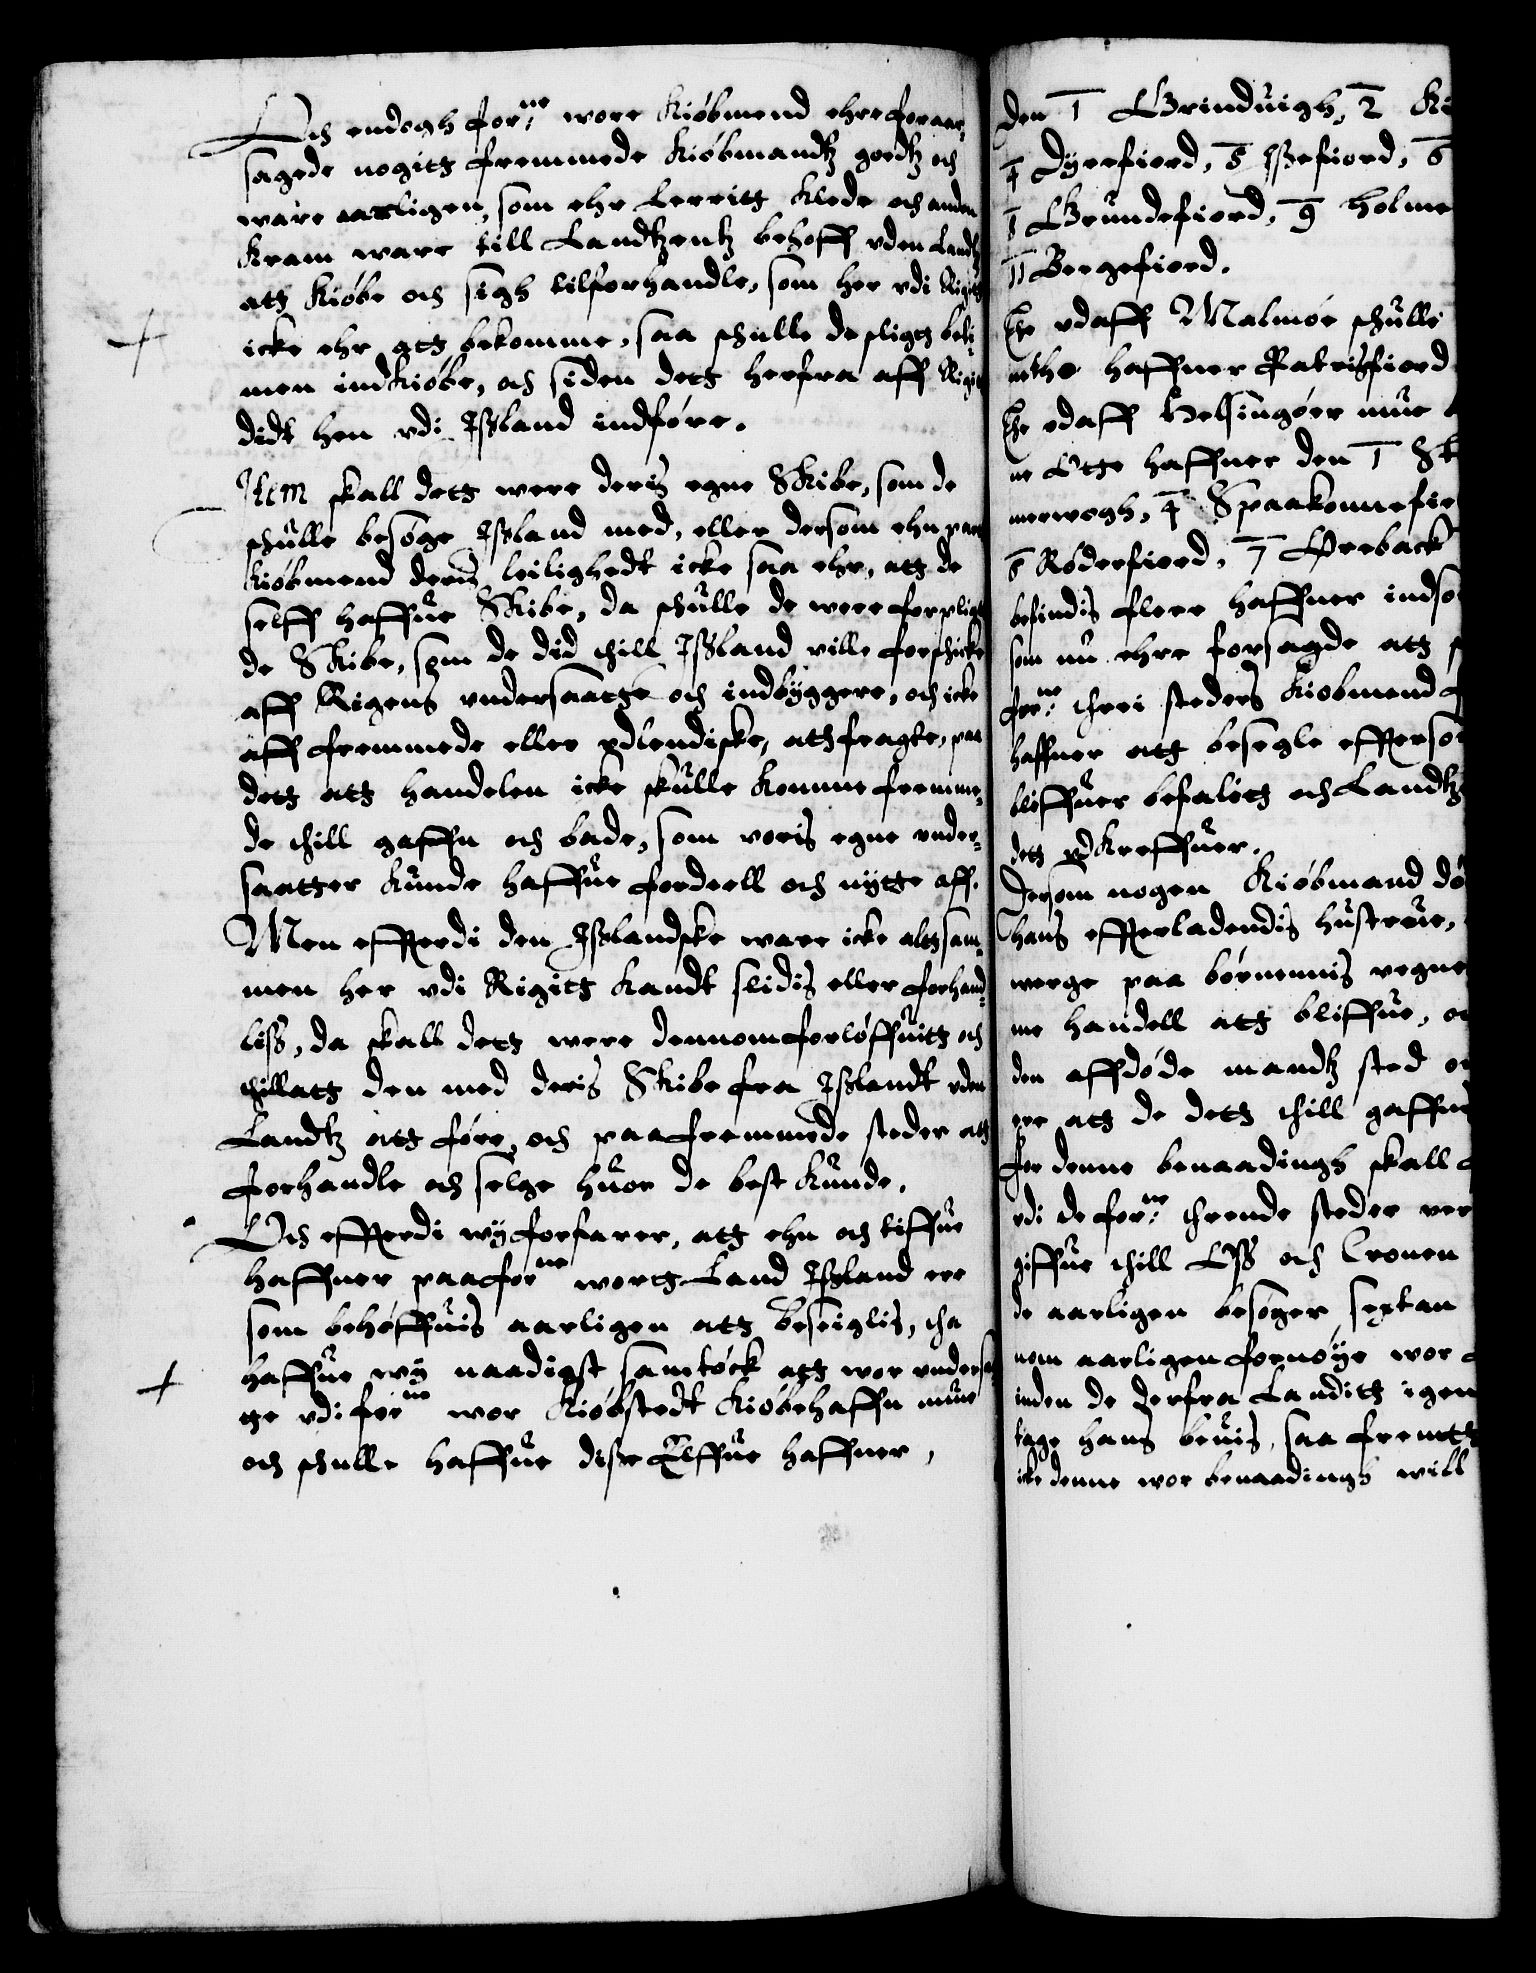 Och endogh forne wore Kiøbmend ehre foraar-
sagede nogitt fremmede Kiøbmandtz goedtz och
ware aarligen, som ehr Lerritt Klede och anden
Kram ware till Landtzentz behoff vden Landtz
att Kiøbe och sigh tilforhandle, som her vdi Rigitt
icke ehr att bekomme, saa schulle de pligt beti-
men indKiøbe, och siden dett herfra aff Rigitt
didt hen vdi Ißland indføre.
Item skall dett were deris egne Skibe, som de
schulle besøge Ißland med, eller dersom ehn part
Kiøbmend deris leilighedt icke saa ehr, att de
selff haffue Skibe, da schulle de were forpligt
de Skibe, som de did thill Ißland ville forschicke
aff Rigens vndersaatte och indbyggere, och icke
aff fremmede eller vdlendiske, att fragte, paa
dett att handelen icke skulle komme fremme-
de thill gaffn och bade, som voris egne vnder-
saatter Kunde haffue fordeell och nytte aff.
Men effterdi den Ißlandske ware icke altt sam-
men her vdi Rigitt Kandt slidis eller forhand-
liss, da skall dett were dennom forløffuitt och
thillatt den med deris Skibe fra Ißlandt vden
Landtz att føre, och paa fremmede steder att
forhandle och selge huor de best Kunde.
Och effterdi wy forfarer, att ehn och tiffue
haffner paa forne wortt Land Ißland ere
som behøffuis aarligen att beseiglis, tha
haffue wy naadigst samtøck att wor vndersa
te vdi forne wor Kiøbstedt Kiøbehaffn mue
och schulle haffue disse Elffue haffner,
den 1 Grinduigh, 2 Ki
4 Dyrefiord, 5 Ißefiord, 6
8 Grundefiord, 9 Holme
11 Bergefiord.
The vdaff Malmøe schulle
nethe haffner Patrixfiord
The vdaff Helsingøer mue
ne Otte haffner den 1 Sk
merwogh, 4 Spaakonnefio
6 Røderfiord, 7 Øreback
befindis flere haffner indso
som nu ehre forsagde att
forne threi steders Kiobmend f
haffner att besegle effterso
bliffuer befalitt och Landtz
dett vdKreffuer.
Dersom nogen Kiøbmand dø
hans effterladendis hustrue,
werge paa børnennis vegne
me handell att bliffue, oc
den affdøde mandtz sted oc
ere att de dett thill gaffns
for denne benaadingh skall
vdi de forne thrende steder ver
giffue thill Oß och Cronen
de aarligen besøger, sextan
nom aarligen fornøye wor
inden de derfra Landitt igen
tage hans beuis, saa fremtt
icke denne wor benaadingh will